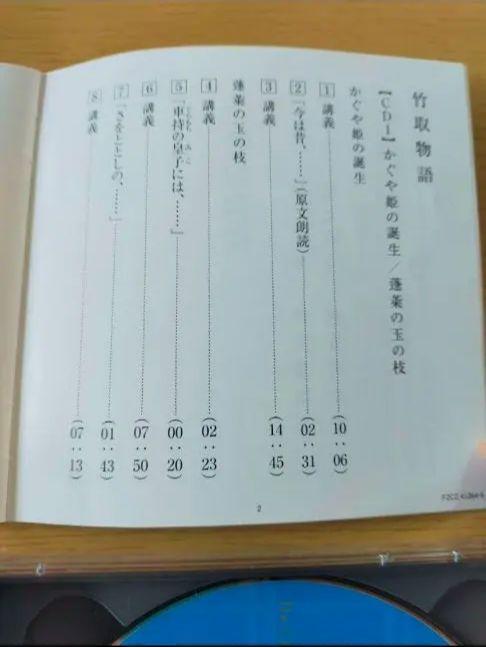 竹取物語
【CD1】かぐや姫の誕生／蓬莱の玉の枝
かぐや姫の誕生
1 講義……(10:06)
2 「今は昔、……」(原文朗読)……(02:31)
3 講義……(14:45)
蓬莱の玉の枝
4 講義……(02:23)
5 「車持の皇子には、……」……(00:20)
6 講義……(07:50)
7 「さをととしの、……」……(01:43)
8 講義……(07:13)
2